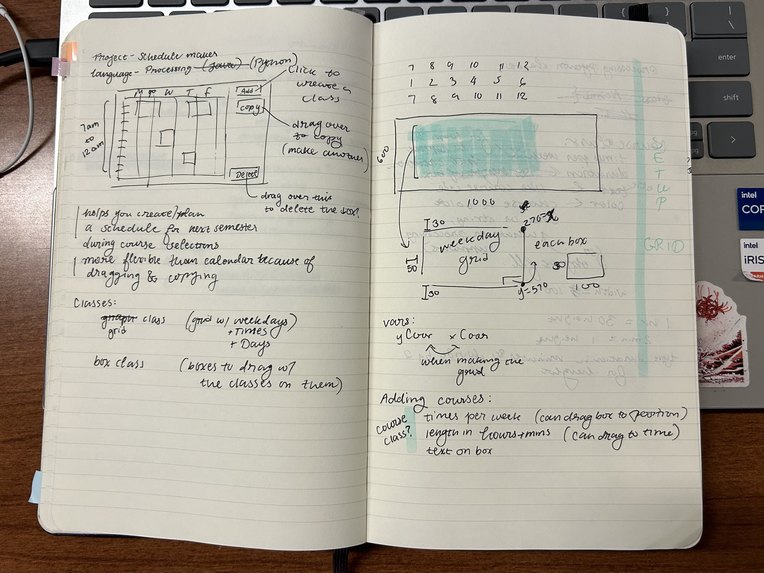 Project - Schedule maker
Language - Processing (Java) (Python)
M T W T F
7am
to
12am
Add
Copy
Delete
Click to
create a
class
drag over
to copy
(make another)
drag over this
to delete the box?
helps you create/plan
a schedule for next semester
during course selections
more flexible than calendar because of
dragging & copying
Classes:
graph class (grid w/ weekdays)
grid + Times
+ Days
box class (boxes to drag w/
the classes on them)
7 8 9 10 11 12
1 2 3 4 5 6
7 8 9 10 11 12
600
1000
SETUP
30
weekday
grid
50
30
y=570
each box
100
GRID
vars:
yCoor xCoor
when making the
grid
Adding courses:
course
class?
times per week (can drag box to position)
length in hours+mins (can drag to time)
text on box
enter
shift
intel
COR
intel
iRIS